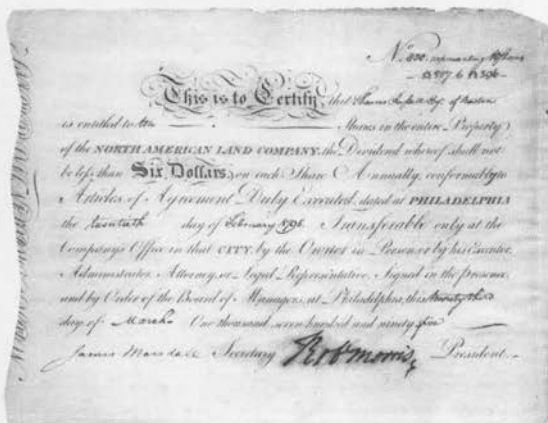 No.
This is to Certify, that Esq. of Boston
is entitled to Ten Shares in the entire Property
of the NORTH AMERICAN LAND COMPANY, the Dividend whereof shall not
be less than Six Dollars, on each Share Annually, conformably to
Articles of Agreement Duly Executed, dated at PHILADELPHIA
the twentieth day of February 1795. Transferable only at the
Company's Office in that CITY, by the Owner in Person, or by his Executor,
Administrator, Attorney, or Legal Representative. Signed in the presence
and by Order of the Board of Managers, at Philadelphia, this twenty third
day of March One thousand seven hundred and ninety five
James Marshall Secretary Robt Morris President.